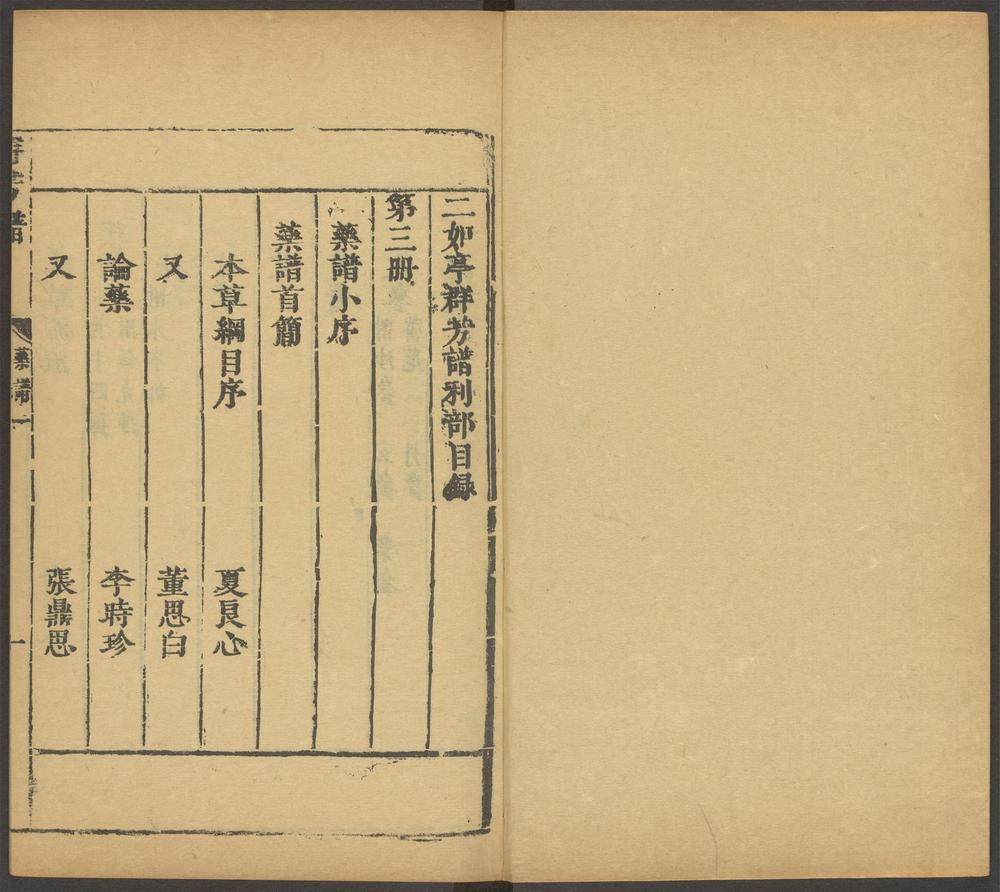 二如亭群芳譜利部目録
第三册
藥譜小序
藥譜首簡
本草綱目序 夏良心
又 董思白
論藥 李時珍
又 張鼎思
藥譜一 一